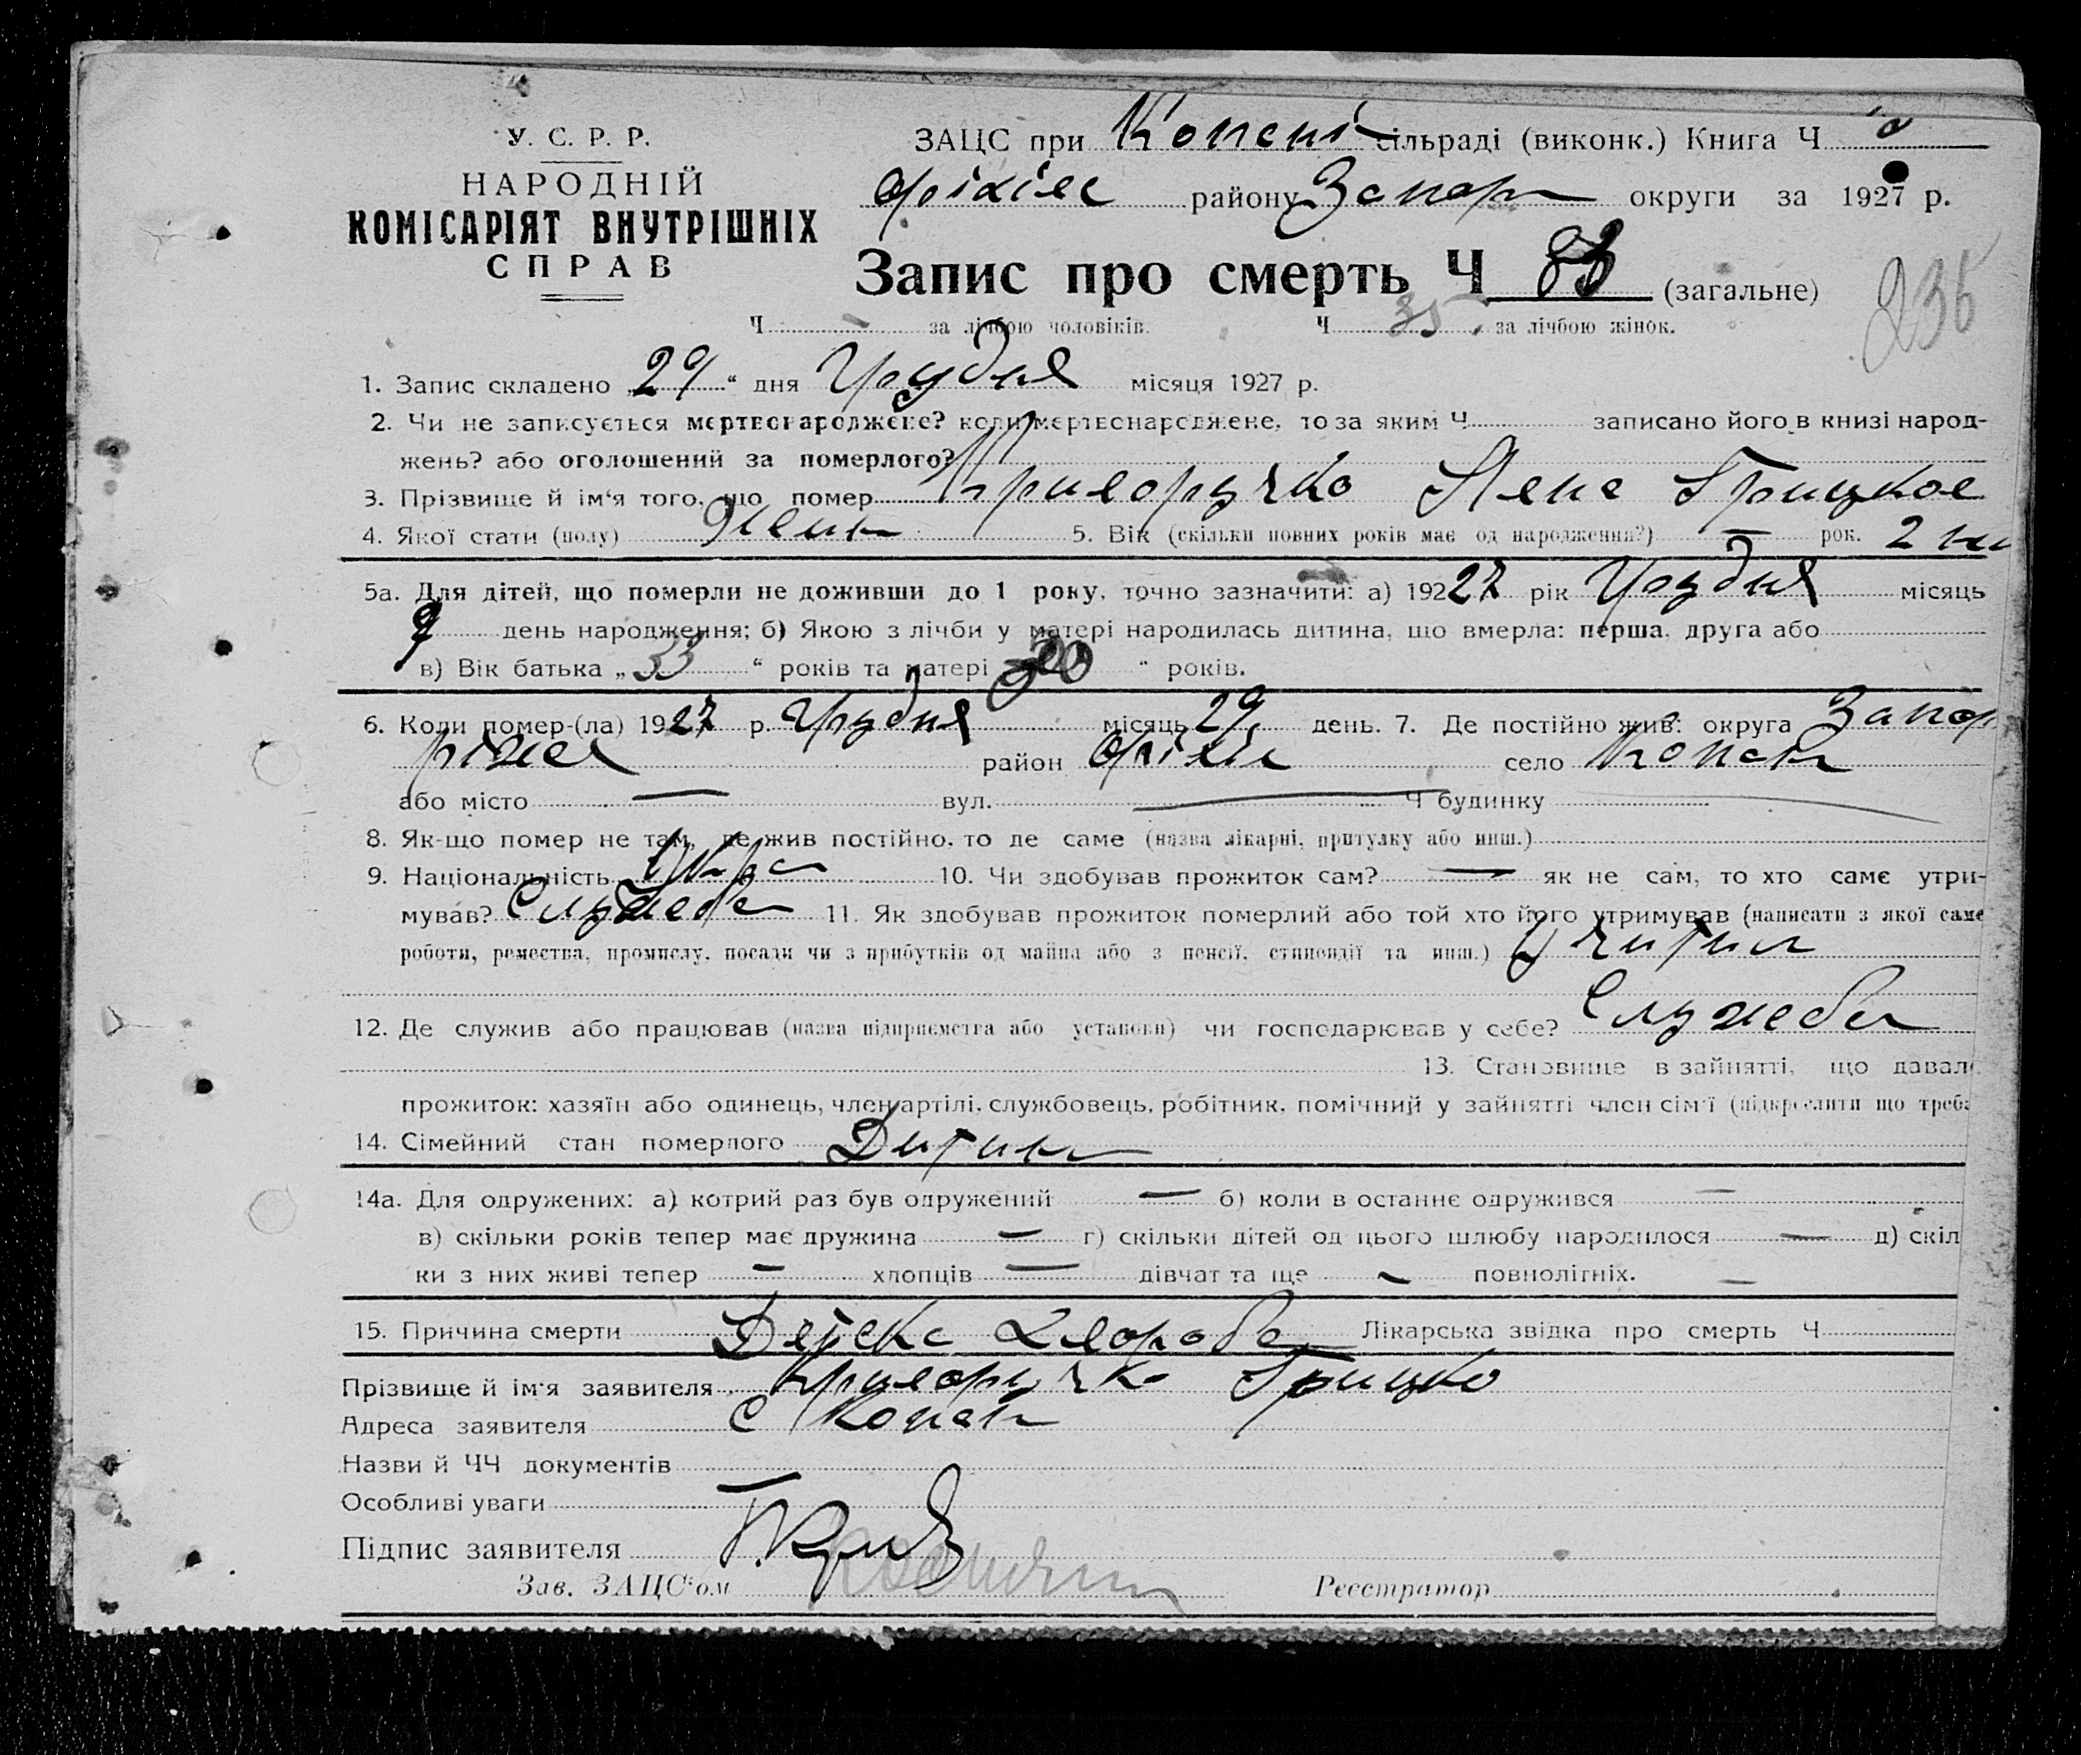 У. С. Р. Р.
НАРОДНІЙ
КОМІСАРІЯТ ВНУТРІШНІХ
СПРАВ
ЗАЦС при Копані сільраді (виконк.) Книга Ч
району Запор округи за 1927 р.
Запис про смерть Ч (загальне)
Ч — за лічбою чоловіків. Ч 35 за лічбою жінок.
235
1. Запис складено „29“ дня Грудня місяця 1927 р.
2. Чи не записується мертвонароджене? коли мертвонароджене, то за яким Ч записано його в книзі народ-
жень? або оголошений за померлого?
3. Прізвище й ім'я того, що помер Криворучко Грицков
4. Якої стати (полу) Жин 5. Вік (скільки повних років має од народження?) — рок. 2
5а. Для дітей, що померли не доживши до 1 року, точно зазначити: а) 19227 рік Грудня місяць
9 день народження; б) Якою з лічби у матері народилась дитина, що вмерла: перша, друга або
в) Вік батька „33“ років та матері „30“ років.
6. Коли помер-(ла) 1927 р. Грудня місяць 29 день. 7. Де постійно жив: округа Запор
ріжж район село Копані
або місто — вул. — Ч будинку
8. Як-що помер не там, де жив постійно, то де саме (назва лікарні, притулку або инш.)
9. Національність Укр 10. Чи здобував прожиток сам? — як не сам, то хто саме утри-
мував? Служба 11. Як здобував прожиток померлий або той хто його утримував (написати з якої саме
роботи, ремества, промислу, посади чи з прибутків од майна або з пенсії, стипендії та инш.) Учитил
12. Де служив або працював (назва підприємства або установи) чи господарював у себе? Служба
13. Становище в зайнятті, що давал
прожиток: хазяїн або одинець, член артілі, службовець, робітник, помічний у зайнятті член сім'ї (підкреслити що треба
14. Сімейний стан померлого Дитина
14а. Для одружених: а) котрий раз був одружений — б) коли в останнє одружився —
в) скільки років тепер має дружина — г) скільки дітей од цього шлюбу народилося — д) скіл
ки з них живі тепер — хлопців — дівчат та ще — повнолітніх. —
15. Причина смерти Детска Хвороба Лікарська звідка про смерть Ч
Прізвище й ім'я заявителя Криворучко Грицко
Адреса заявителя С Копані
Назви й ЧЧ документів
Особливі уваги
Підпис заявителя Г. Крив
Зав. ЗАЦС'ом Реєстратор